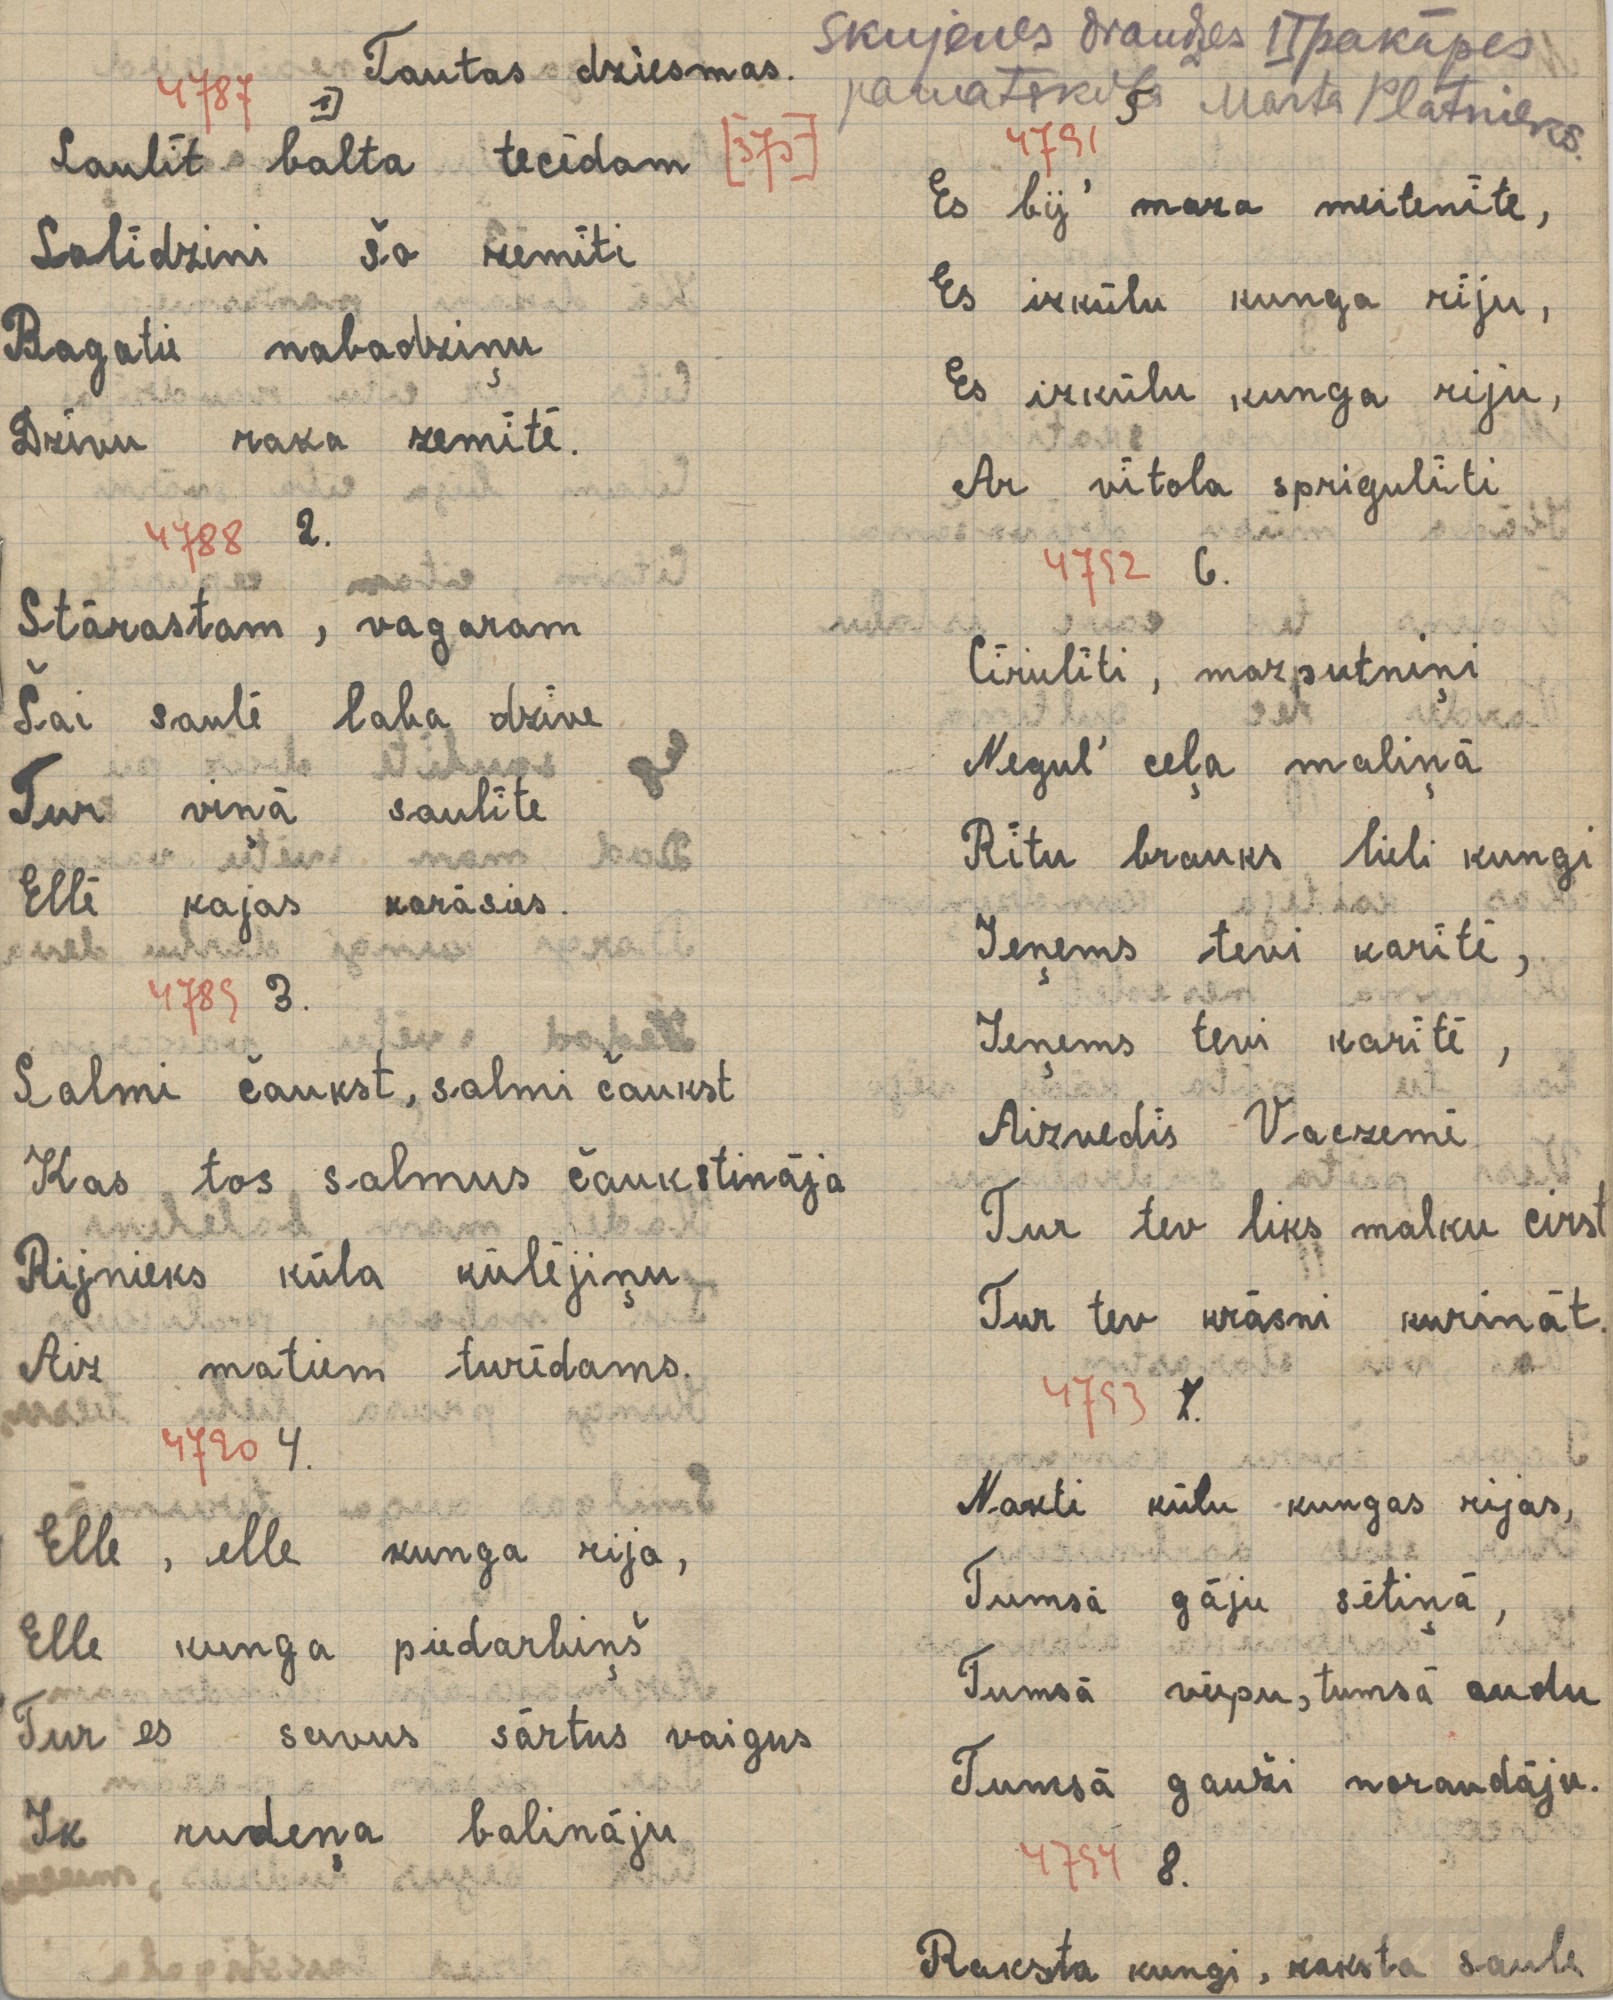 Tautas dziesmas.
Skujenes draudzes II pakāpes
pamatskola Marta Platnieks.
4787 1)
Saulīt balta tecēdam [375]
Salīdzini šo zemīti
Bagatie nabadziņu
Dzīvu raka zemītē.
4788 2.
Stārastam, vagaram
Šai saulē laba dzīve
Tur viņā saulīte
Ellē kajas karāsies.
4789 3.
Salmi čaukst, salmi čaukst
Kas tos salmus čaukstināja
Rijnieks kūla kūlējiņu
Aiz matiem turēdams.
4790 4.
Elle, elle kunga rija,
Elle kunga piedarbiņš
Tur es savus sārtus vaigus
Ik rudeņa balināju
4791 5
Es bij' maza meitenīte,
Es izkūlu kunga riju,
Es izkūlu kunga riju,
Ar vītola sprigulīti
4792 6.
Cīrulīti, mazputniņi
Negul' ceļa maliņā
Rītu brauks lieli kungi
Ieņems tevi karītē,
Ieņems tevi karītē,
Aizvedīs Vaczemē
Tur tev liks malku cirst
Tur tev krāsni kurināt.
4793 7.
Nakti kūlu kungas rijas,
Tumsā gāju sētiņā,
Tumsā vērpu, tumsā audu
Tumsā gauži noraudāju.
4794 8.
Raksta kungi, raksta saule